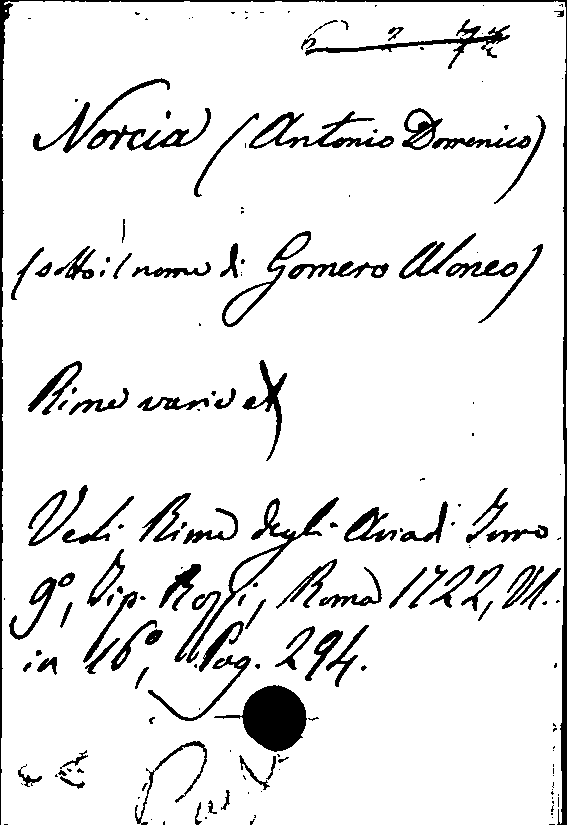 Norcia (Antonio Domenico)
(sotto il nome di Gomero Aloneo)
Rime varie
Vedi Rime degli Arcadi Tomo
9º, Tip. Rossi, Roma 1722,
in 16º, Pag. 294.